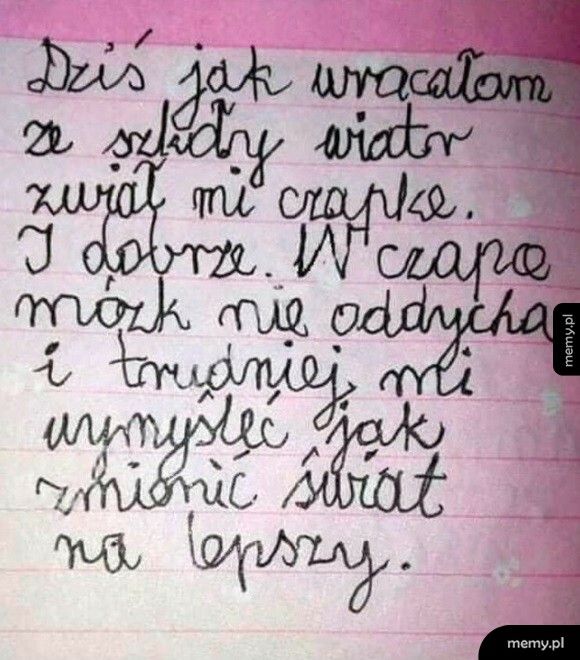 Dziś jak wracałam
ze szkoły wiatr
zwiał mi czapkę.
I dobrze. W czapce
mózk nie oddycha
i trudniej mi
wymyśleć jak
zmienić świat
na lepszy.
memy.pl
memy.pl